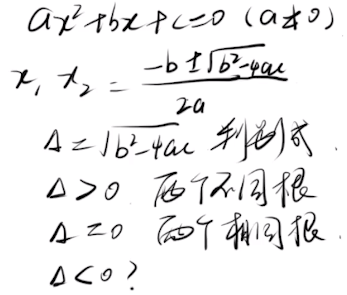 ax²+bx+c=0 (a≠0)
x₁ x₂ = (-b±√(b²-4ac))/2a
Δ=√(b²-4ac) 判别式
Δ>0 两个不同根
Δ=0 两个相同根
Δ<0?